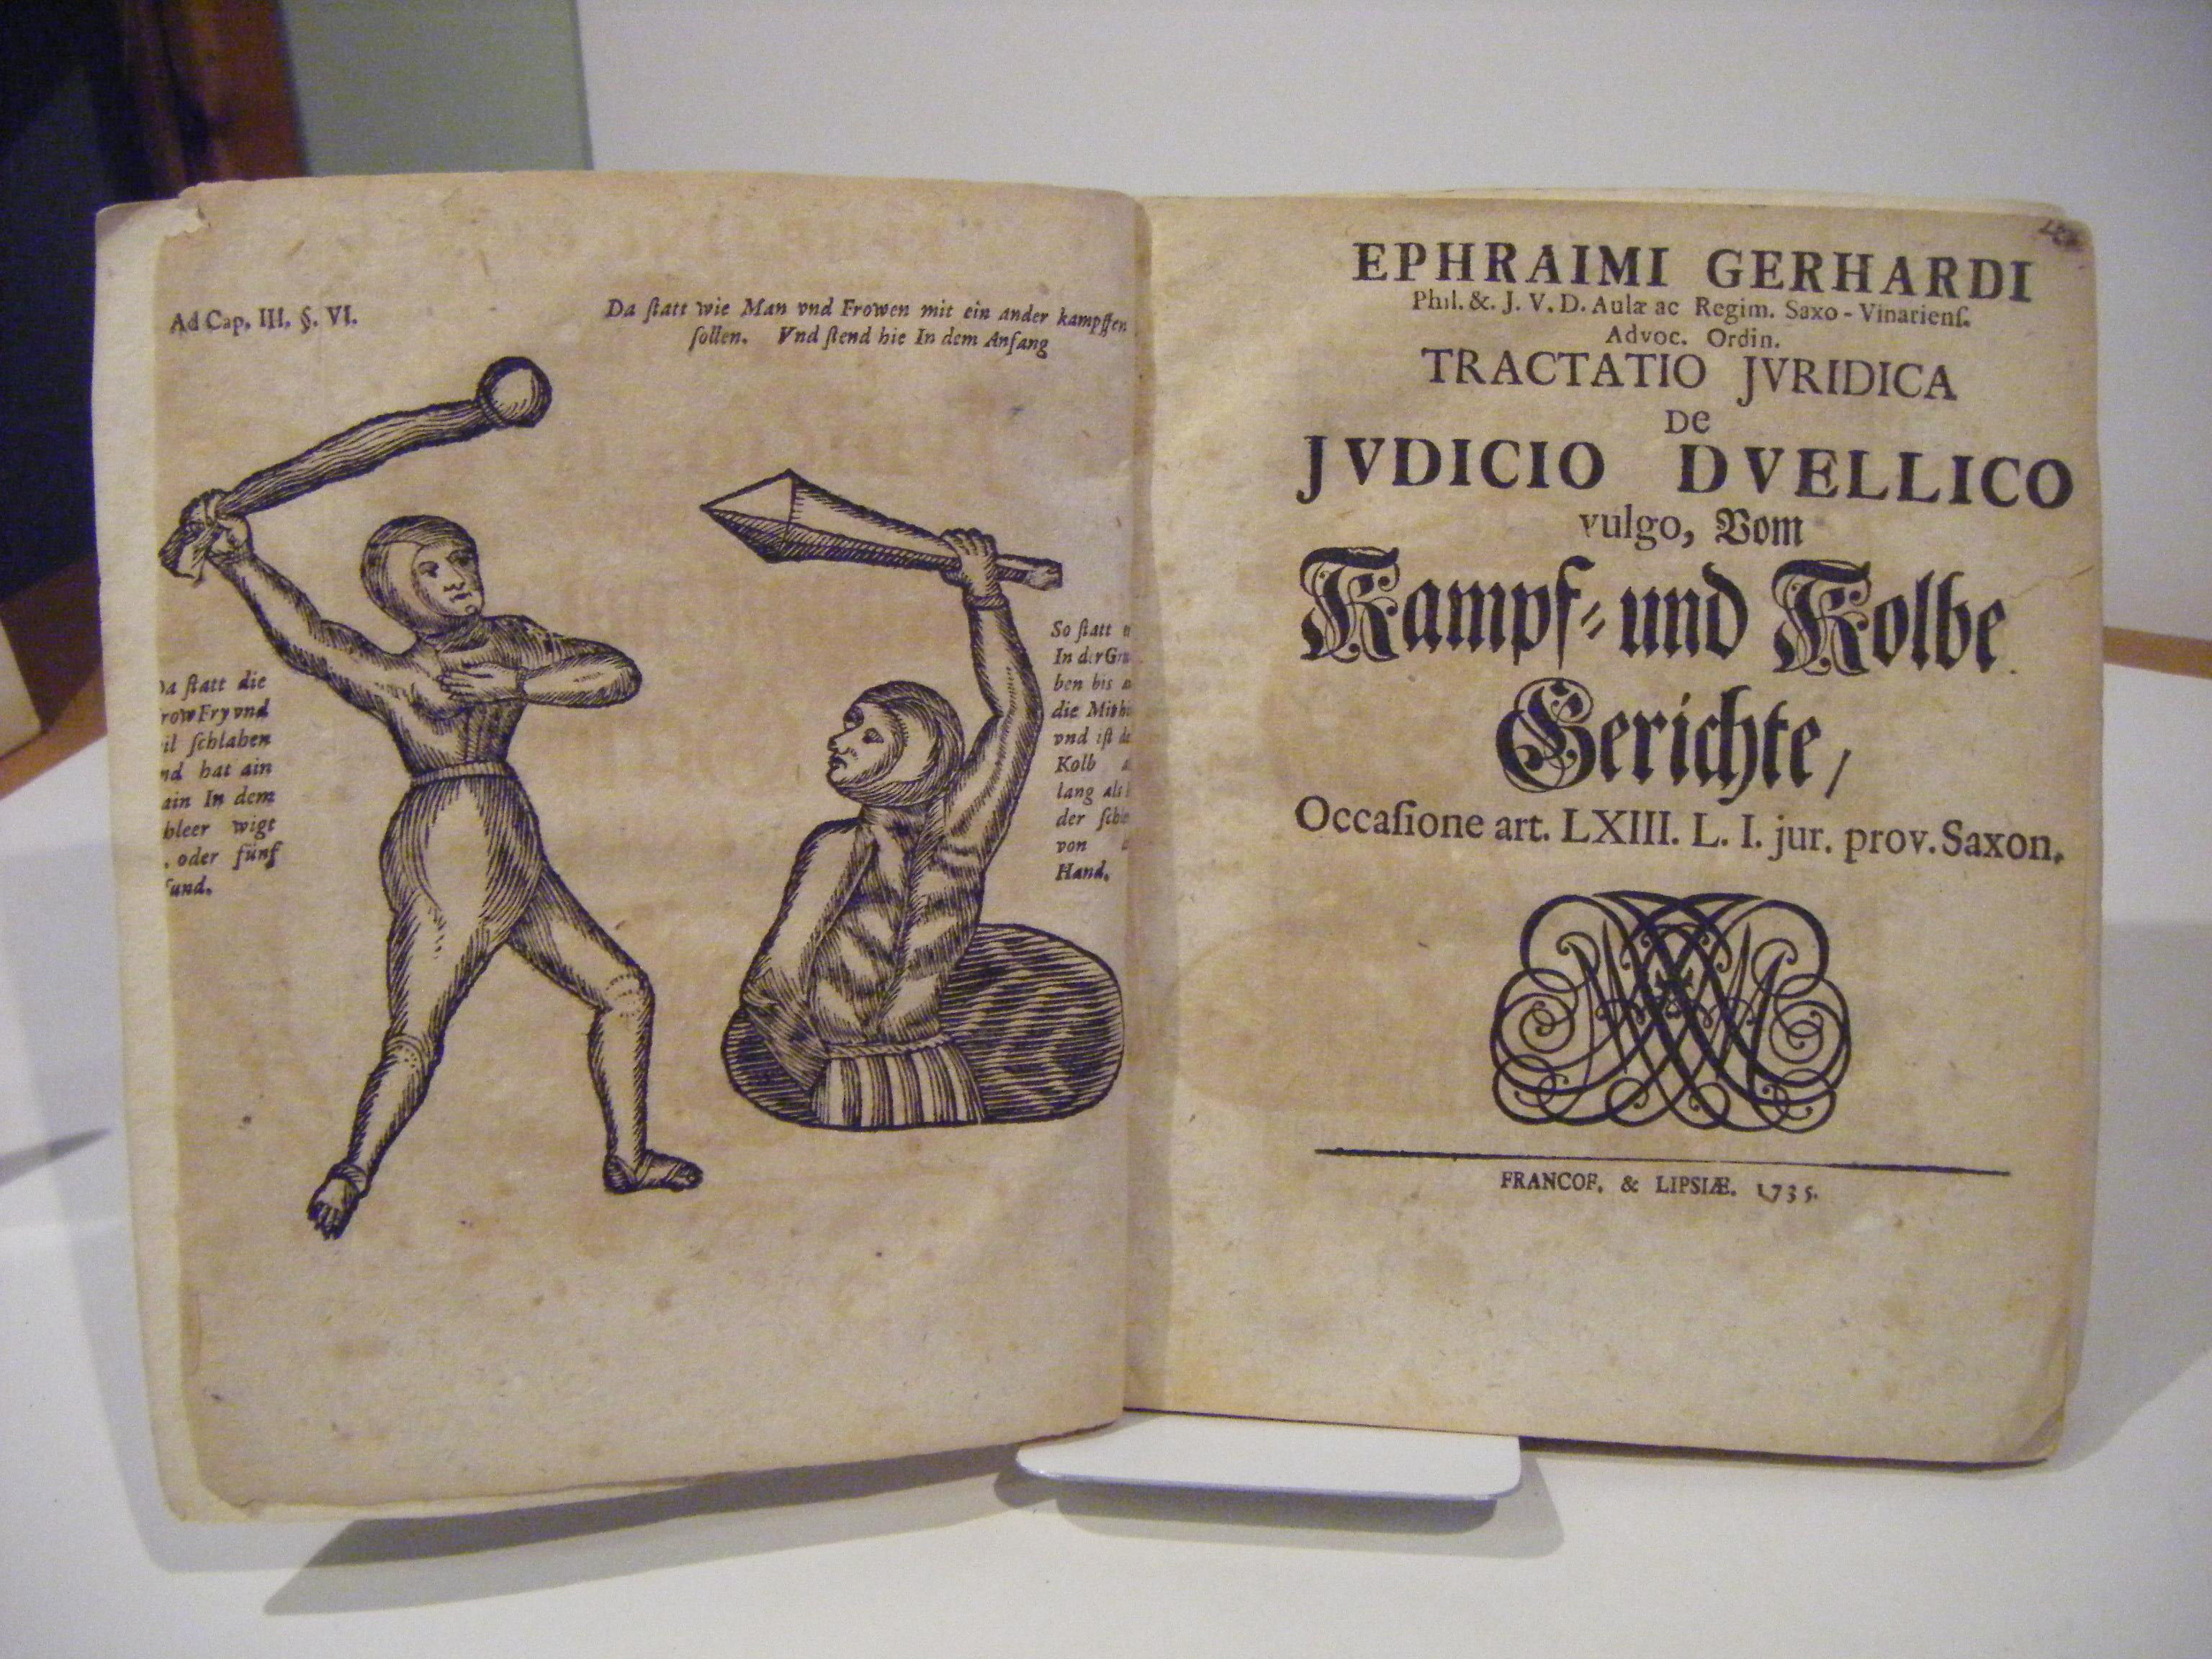 Ad Cap. III. §. VI.
Da ſtatt wie Man vnd Frowen mit ein ander kampffen
ſollen. Vnd ſtend hie In dem Anfang
ſtatt die
Fry vnd
ſchlahen
hat ain
In dem
wigt
oder fünf
So ſtatt
In der
ben bis
die
vnd iſt
Kolb
lang als
der
von
Hand.
EPHRAIMI GERHARDI
Phil. &. J. V. D. Aulæ ac Regim. Saxo-Vinarienſ.
Advoc. Ordin.
TRACTATIO JVRIDICA
DE
JVDICIO DVELLICO
vulgo, Vom
Kampf- und Kolbe
Gerichte,
Occaſione art. LXIII. L. I. jur. prov. Saxon.
FRANCOF. & LIPSIÆ. 1735.